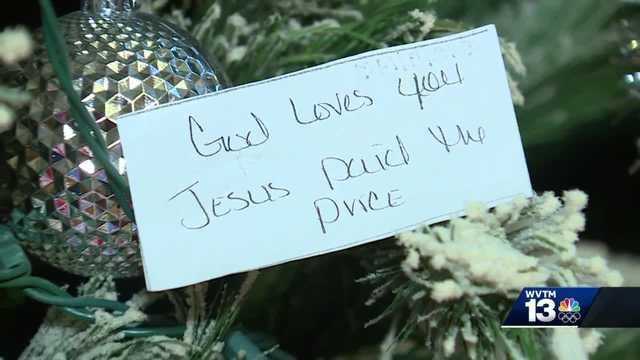 God Loves you
Jesus paid the
price
WVTM
13